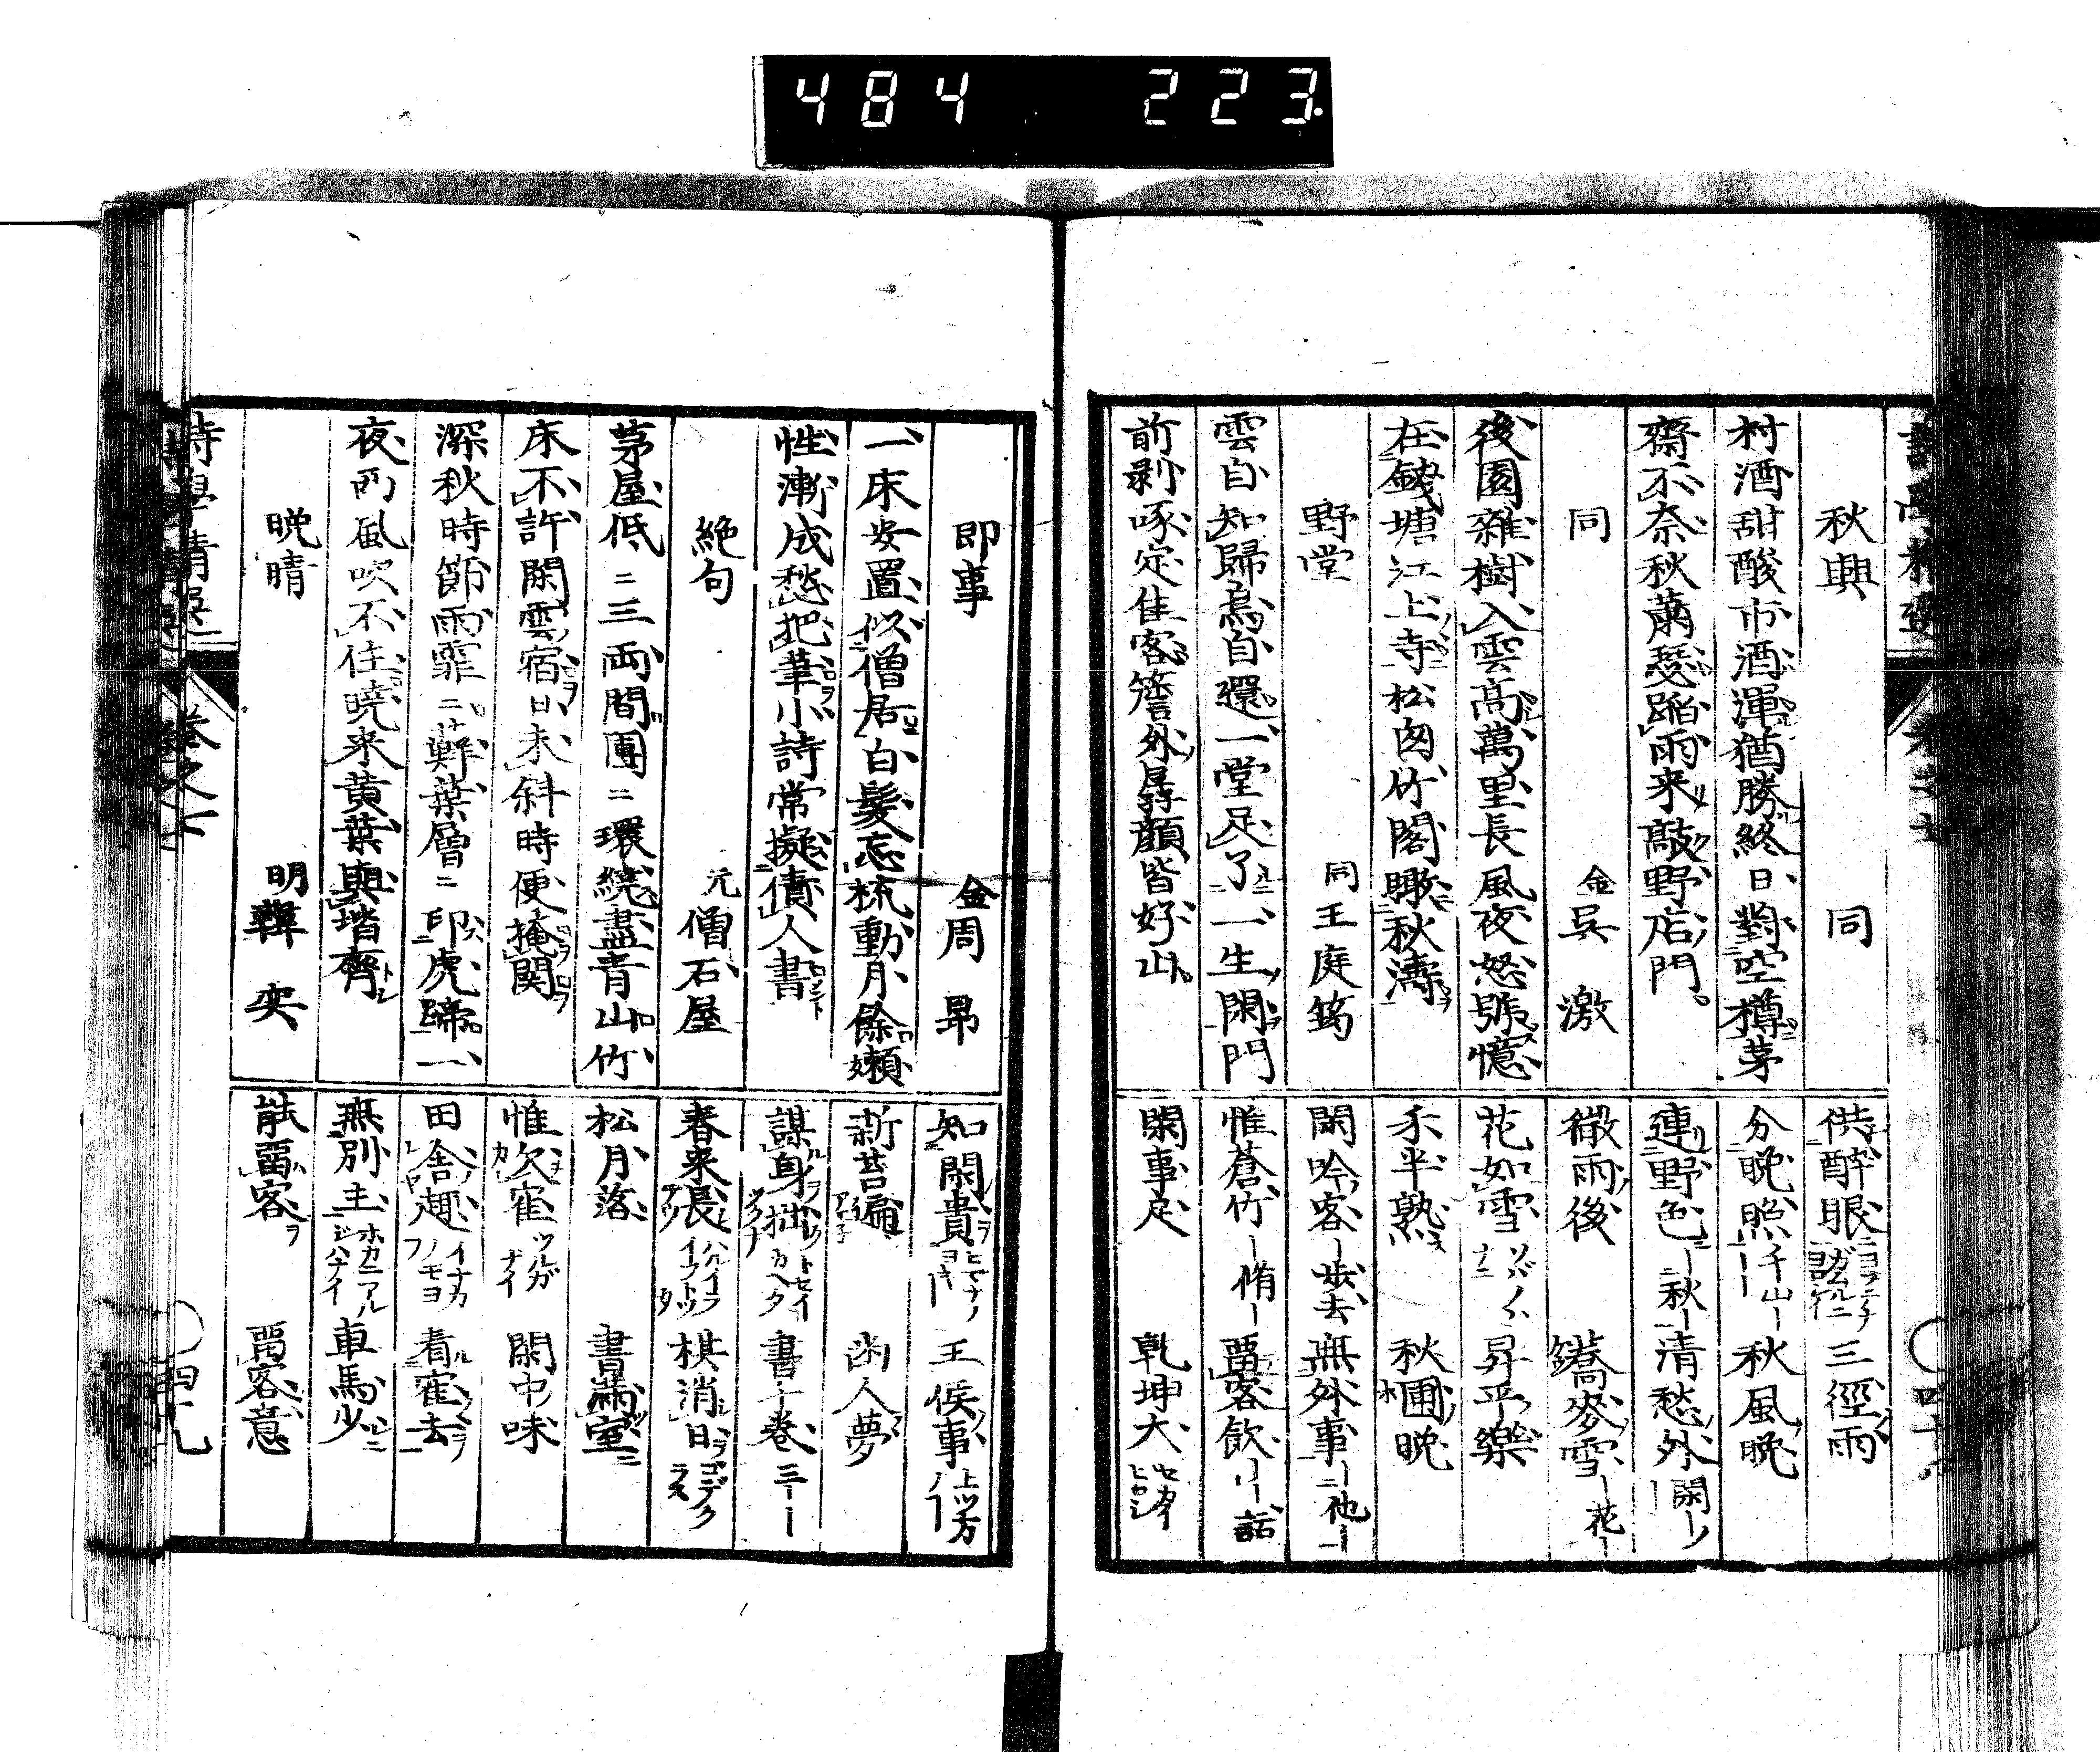 484 223
秋興 同
村酒甜酸市酒渾猶勝終日對空樽茅
齋不奈秋蕭瑟蹈雨来敲野店門
同 金 呉激
後園雜樹入雲高萬里長風夜怒號憶
在錢塘江上寺松囱竹閣瞰秋濤
野堂 同 王庭筠
雲自知歸鳥自還一堂足了一生閑門
前剥啄定佳客簷外孱顔皆好山
供醉眼 三徑雨
分晩照 千山 秋風晩
連野色 秋 清愁外 閑
微雨後 蕎麥雪 花
花如雪 昇平樂
禾半熟 秋圃晩
閑吟客 歩去 無外事 他
惟蒼竹 脩 畱客飲 話
閑事足 乾坤大 セカイヒロシ
即事 金 周昂
一床安置似僧居白髮忘梳動月餘嬾
性漸成愁把筆小詩常擬倩人書
絶句 元 僧石屋
茅屋低二三兩間團二環繞盡青山竹
床不許閑雲宿日未斜時便掩関
深秋時節雨霏二蘚葉層二印虎蹄一
夜西風吹不住曉来黄葉與堦齊
晩晴 明 韓奕
知閑貴 王侯事 上ツ方ノ
新苔遍 幽人夢
謀身拙 書十巻 三
春来長 棋消日 ゴデクラス
松月落 書滿室
惟欠寉 ツルガナイ 閑中味
田舎趣 イナカノモヨフ 看寉去
無別主 ホカニアルジハナイ 車馬少
能畱客 畱客意
詩學精選 巻之七 四九